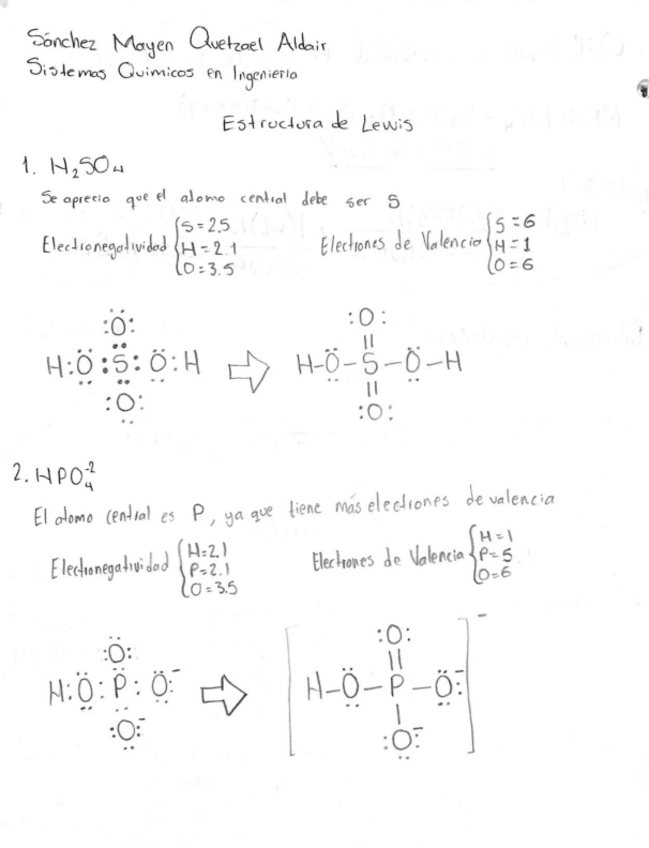 Sánchez Mayen Quetzael Aldair
Sistemas Químicos en Ingeniería
Estructura de Lewis
1. H₂SO₄
Se aprecia que el atomo central debe ser S
Electronegatividad { S = 2.5 H = 2.1 O = 3.5 Electrones de Valencia { S = 6 H = 1 O = 6
:Ö: :O:
H:Ö:S:Ö:H ⇨ H-Ö-S-Ö-H
:O: :O:
2. HPO₄⁻²
El atomo central es P, ya que tiene más electrones de valencia
Electronegatividad { H=2.1 P=2.1 O=3.5 Electrones de Valencia { H=1 P=5 O=6
:Ö: :O:
H:Ö:P:Ö:⁻ ⇨ [H-Ö-P-Ö:⁻]⁻
:O:⁻ :O:⁻